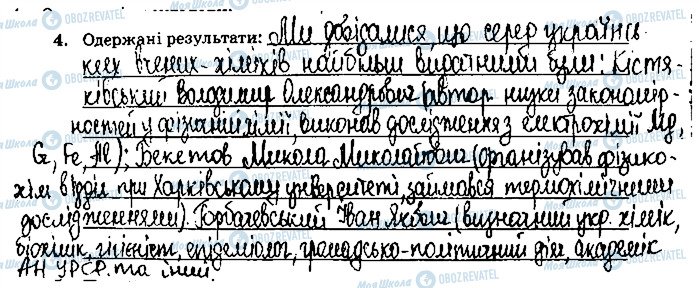 4. Одержані результати: Ми довідалися, що серед українсь-
ких вчених-хіміків найбільш видатними були: Кістя-
ківський Володимир Олександрович (автор низки закономір-
ностей у фізичній хімії, виконав дослідження з електрохімії Mg,
Cr, Fe, Al); Бекетов Микола Миколайович (організував фізико-
хім. відділ при Харківському університеті, займався термохімічними
дослідженнями). Горбачевський Іван Якович (визначний укр. хімік,
біохімік, гігієніст, епідеміолог, громадсько-політичний діяч, академік
АН УРСР. та інші.